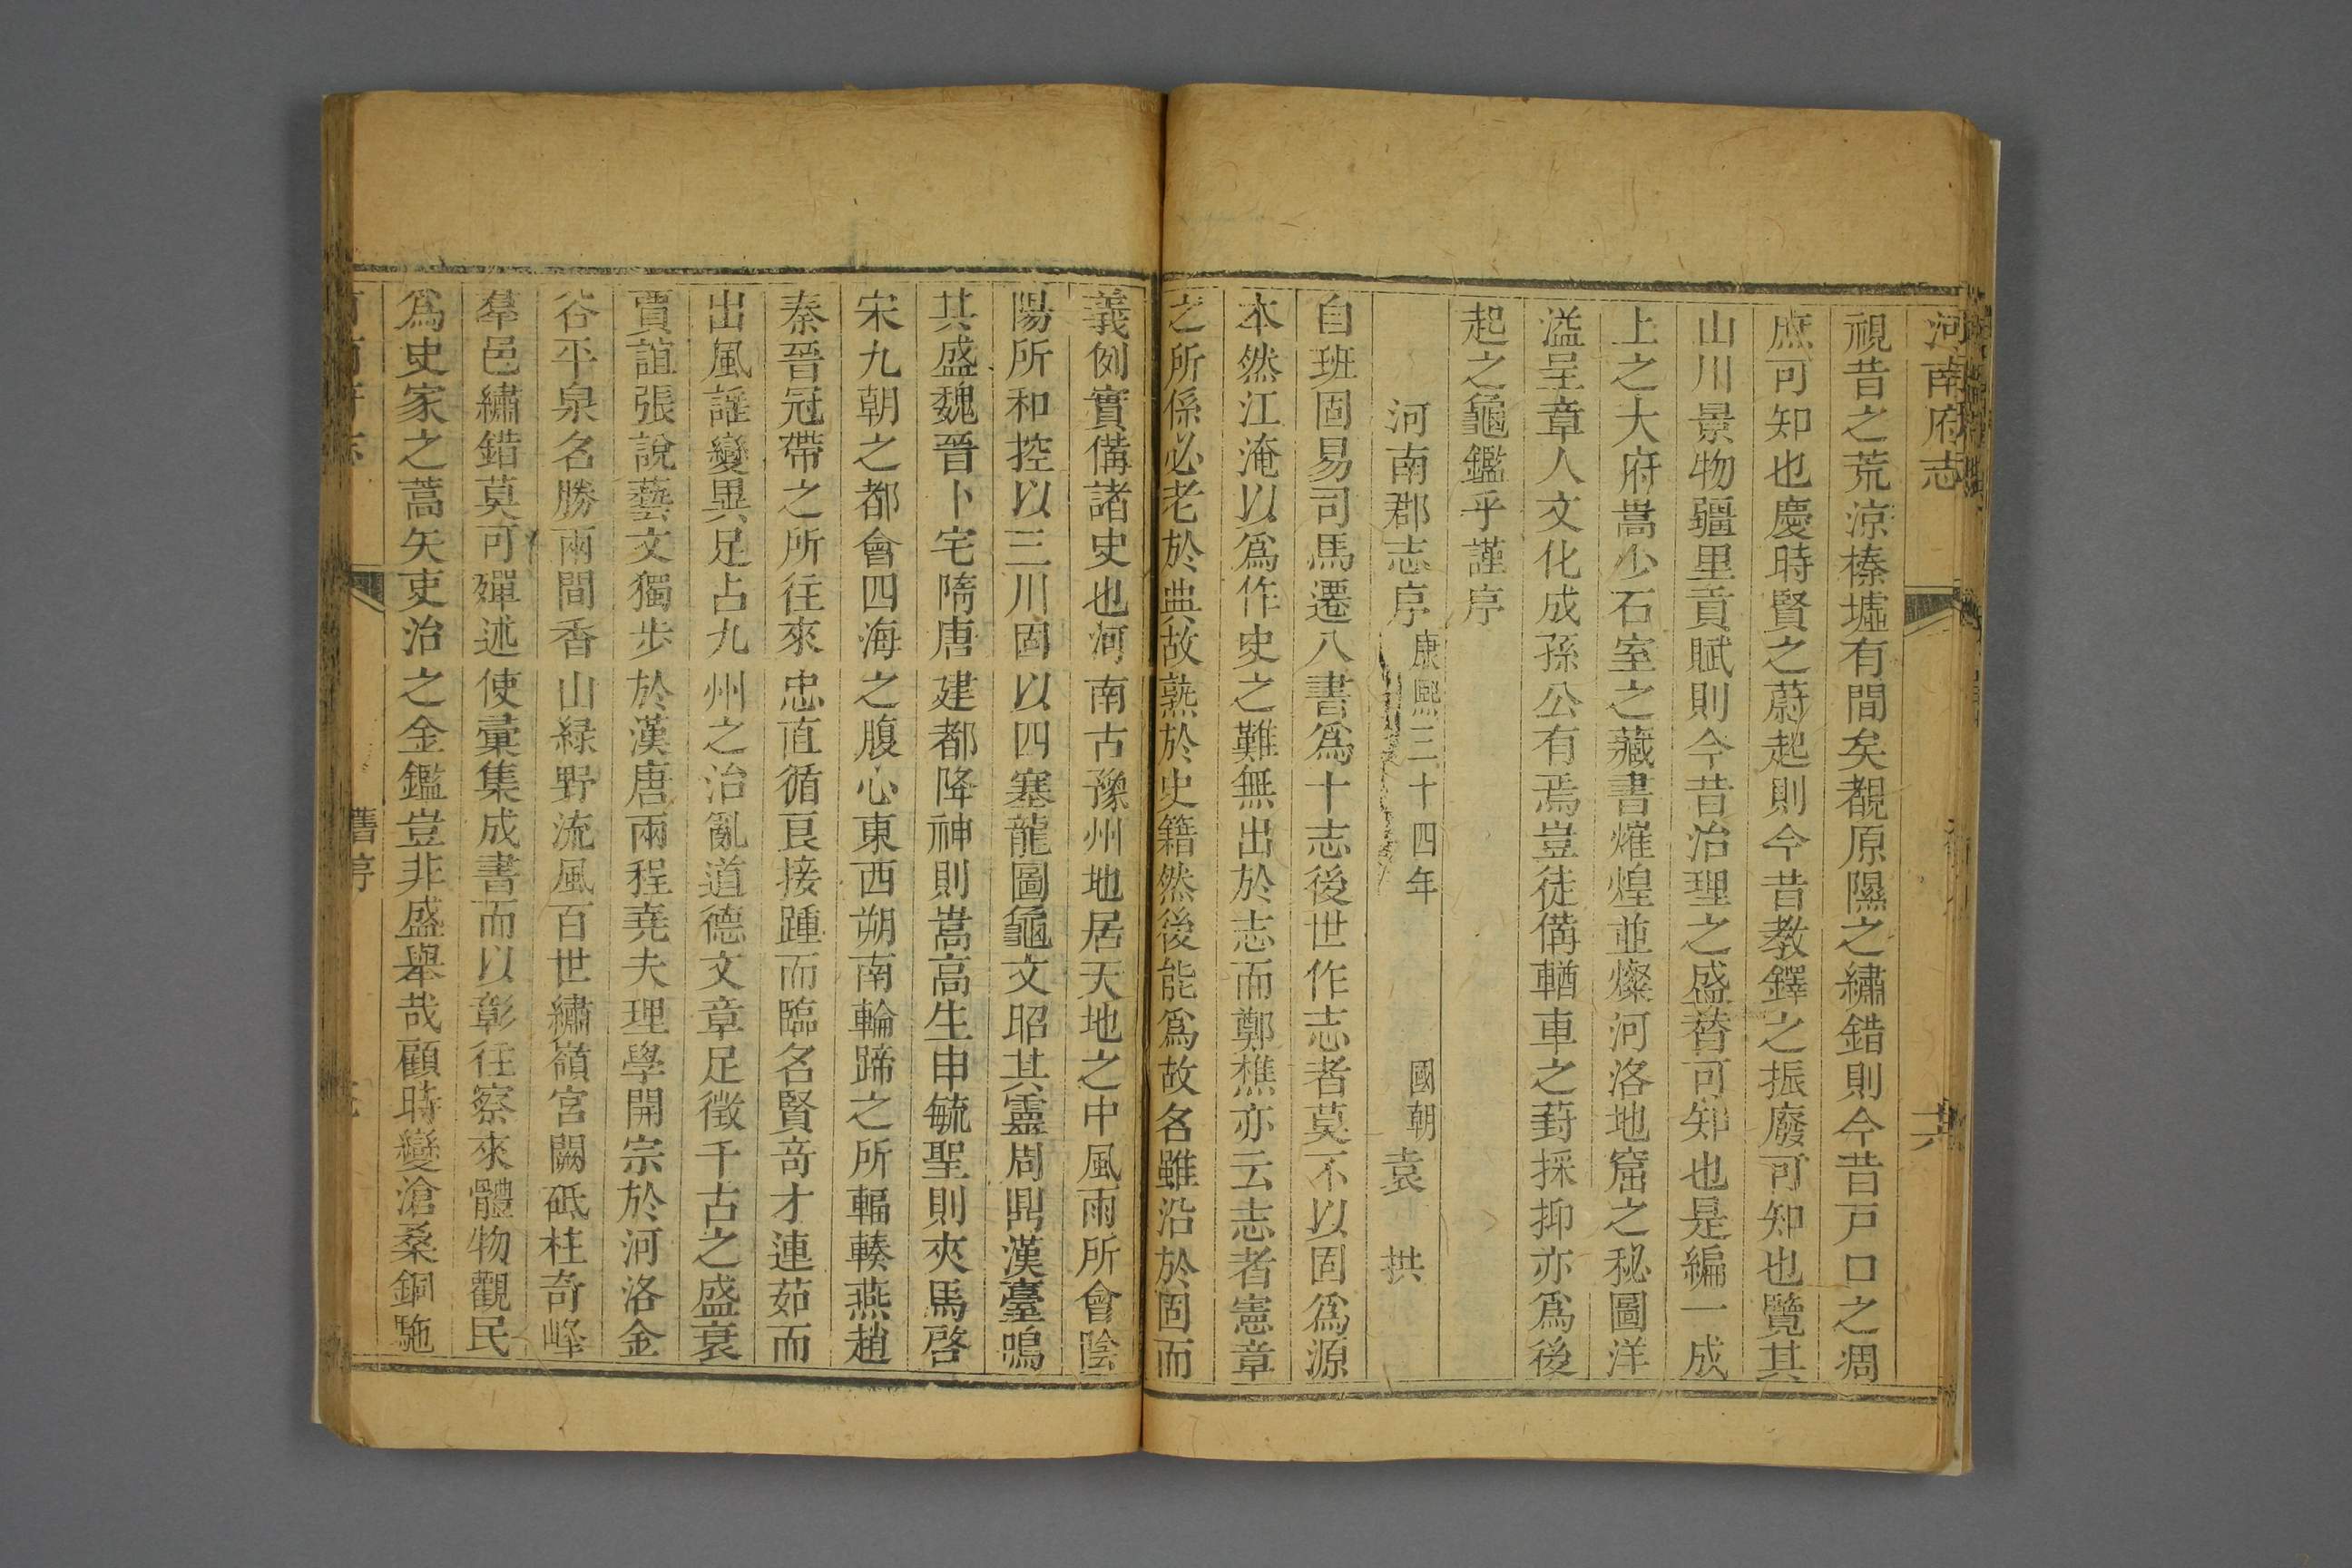 河南府志
六
視昔之荒涼榛墟有間矣覩原隰之繡錯則今昔戸口之凋
庶可知也慶時賢之蔚起則今昔教鐸之振廢可知也覽其
山川景物疆里貢賦則今昔治理之盛替可知也是編一成
上之大府嵩少石室之藏書熣煌並燦河洛地窟之秘圖洋
溢呈章人文化成孫公有焉豈徒備輶車之葑採抑亦爲後
起之龜鑑乎謹序
河南郡志序 康熙三十四年 國朝 袁拱
自班固易司馬遷八書爲十志後世作志者莫不以固爲源
本然江淹以爲作史之難無出於志而鄭樵亦云志者憲章
之所係必老於典故熟於史籍然後能爲故名雖沿於固而
義例實備諸史也河南古豫州地居天地之中風雨所會陰
陽所和控以三川固以四塞龍圖龜文昭其靈周鼎漢臺鳴
其盛魏晉卜宅隋唐建都降神則嵩高生申毓聖則夾馬啓
宋九朝之都會四海之腹心東西朔南輪蹄之所輻輳燕趙
秦晉冠帶之所往來忠直循良接踵而臨名賢竒才連茹而
出風謡變異足占九州之治亂道德文章足徵千古之盛衰
賈誼張說藝文獨步於漢唐兩程堯夫理學開宗於河洛金
谷平泉名勝兩間香山緑野流風百世繡嶺宮闕砥柱奇峰
羣邑繡錯莫可殫述使彙集成書而以彰往察來體物觀民
爲史家之蒿矢吏治之金鑑豈非盛舉哉顧時變滄桑銅駞
舊序